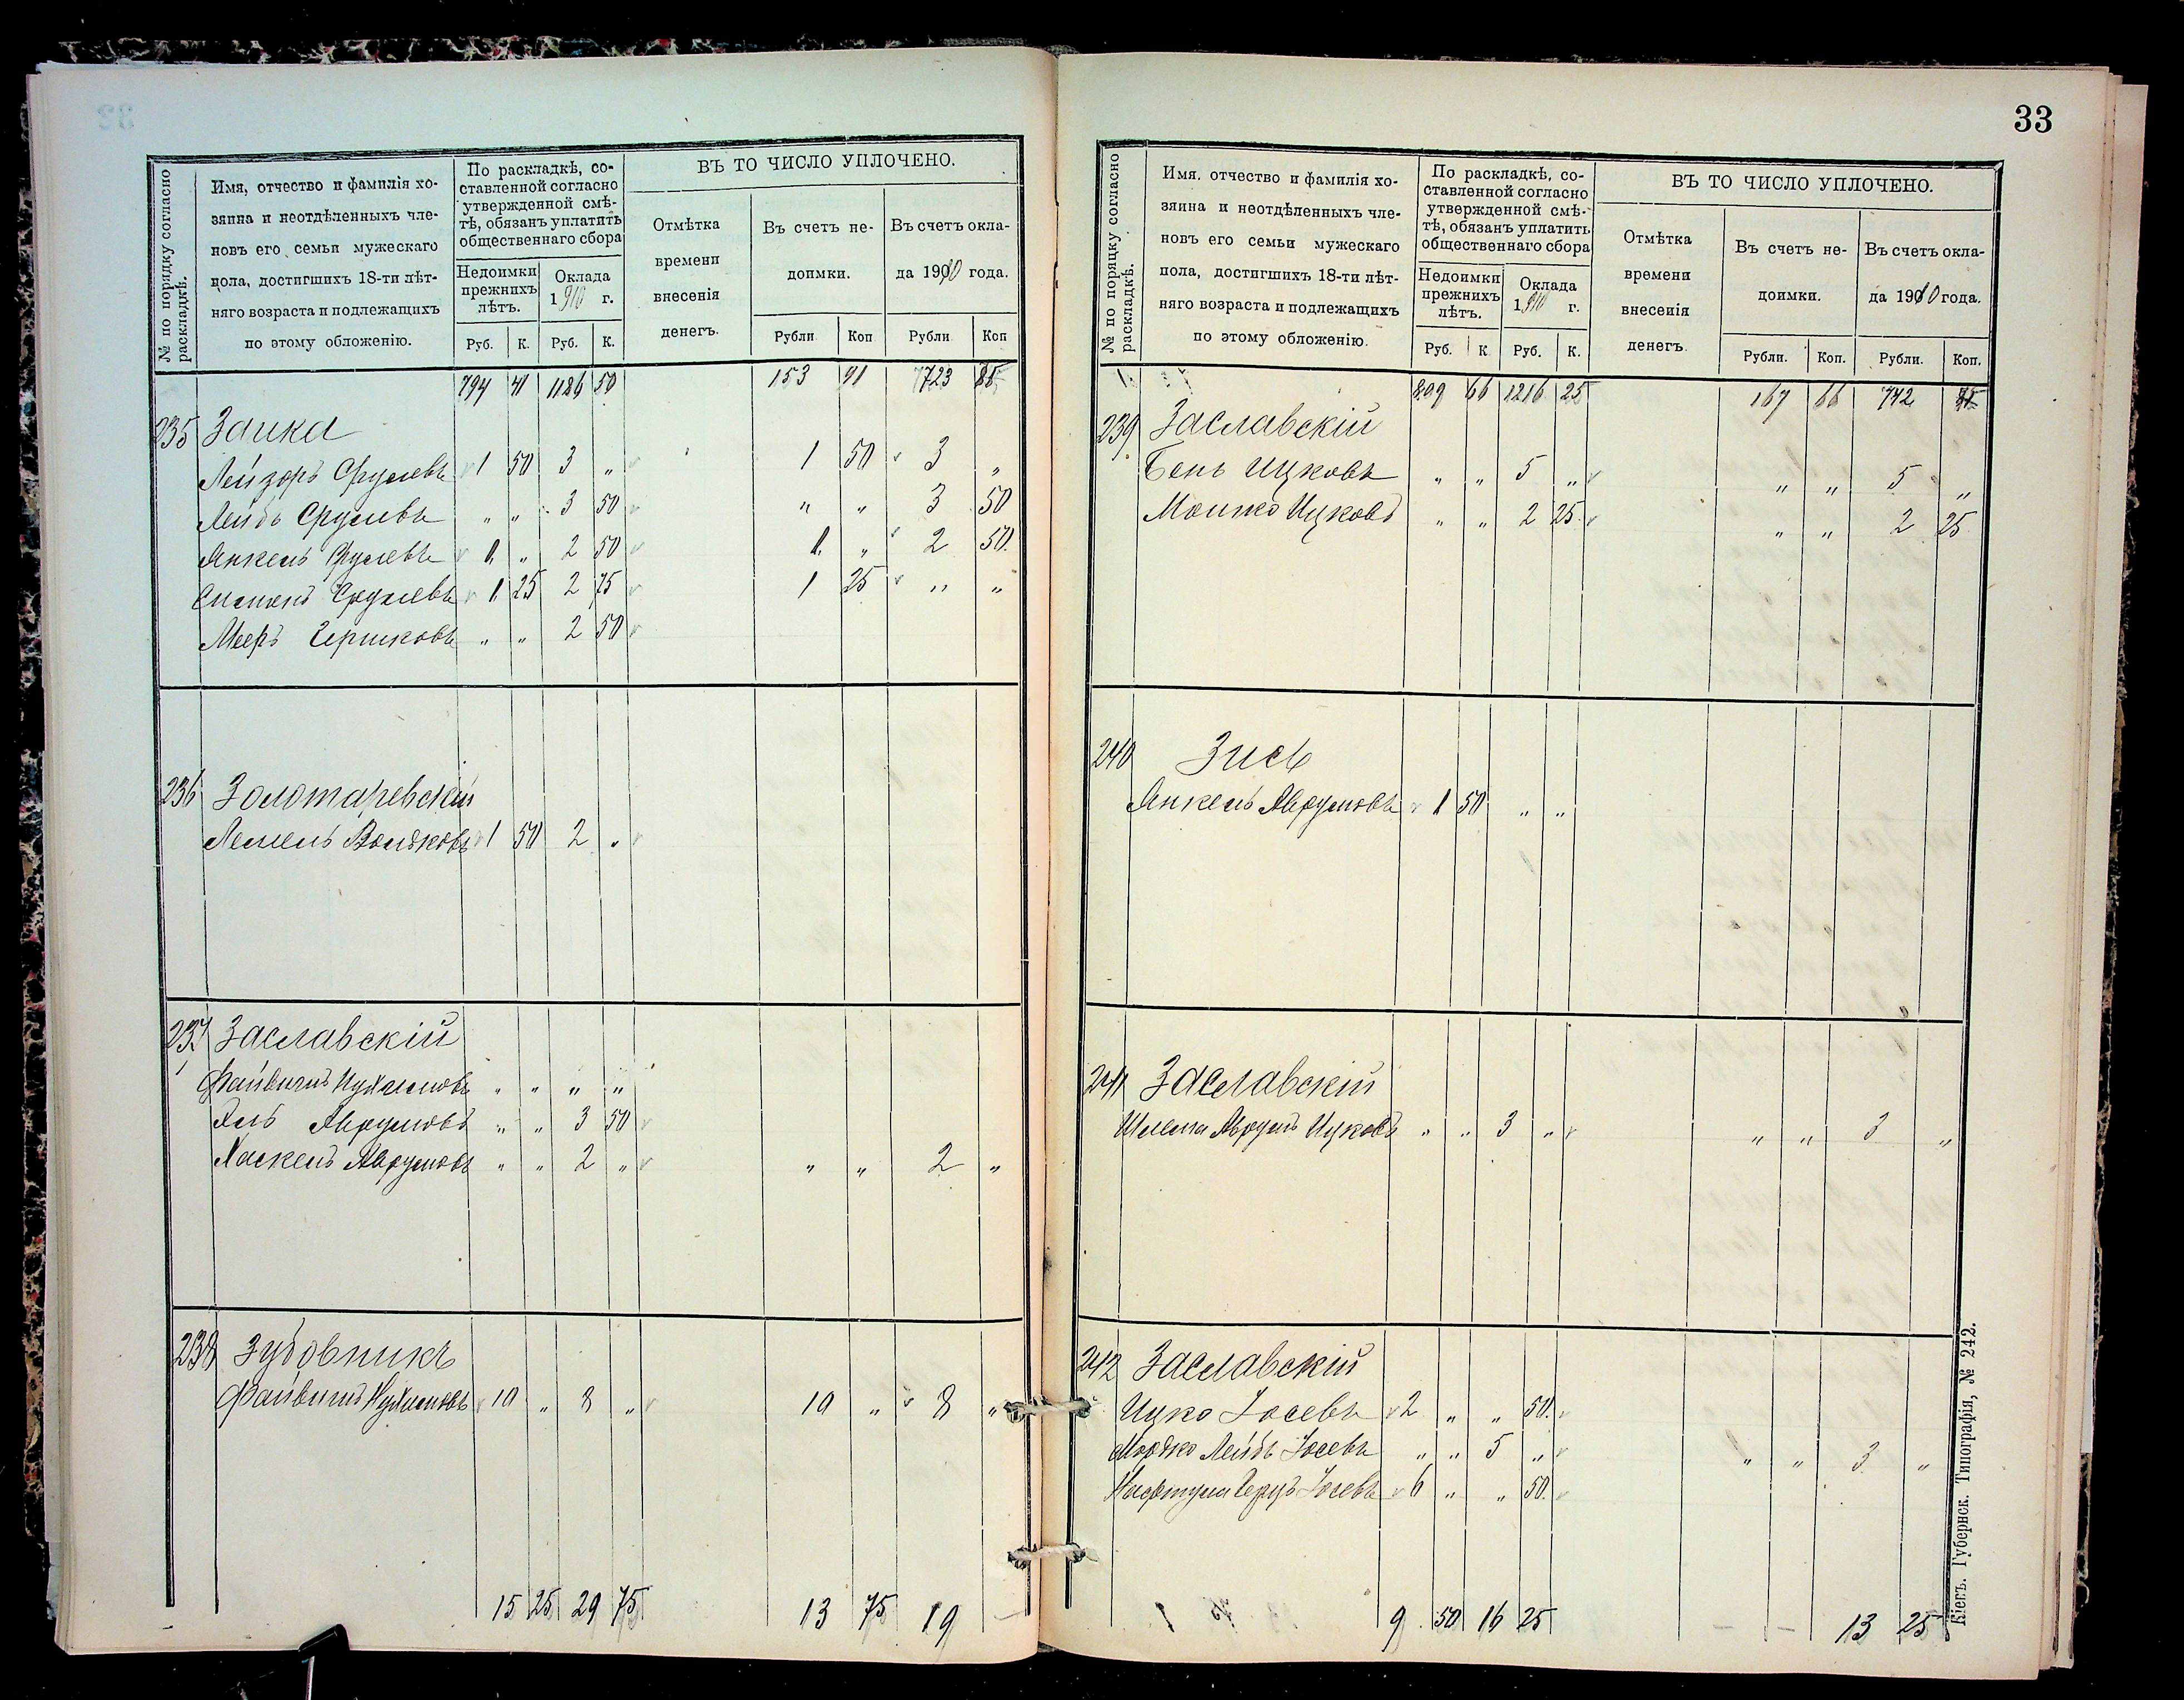 № по порядку согласно раскладкѣ.
Имя, отчество и фамилія хо-
зяина и неотдѣленныхъ чле-
новъ его семьи мужескаго
пола, достигшихъ 18-ти лѣт-
няго возраста и подлежащихъ
по этому обложенію.
По раскладкѣ, со-
ставленной согласно
утвержденной смѣ-
тѣ, обязанъ уплатить
общественнаго сбора
Недоимки
прежнихъ
лѣтъ.
Оклада
1910 г.
Руб. К. Руб. К.
ВЪ ТО ЧИСЛО УПЛОЧЕНО.
Отмѣтка
времени
внесенія
денегъ.
Въ счетъ не-
доимки.
Въ счетъ окла-
да 1910 года.
Рубли Коп Рубли Коп
794 41 1186 50 153 91 723 85
235 Заика
Лейзоръ Срулевъ 1 50 3 „ 1 50 3 „
Лейбъ Срулевъ „ „ 3 50 „ „ 3 50
Янкель Срулевъ 1 „ 2 50 1 „ 2 50
Срулевъ 1 25 2 75 1 25 „ „
Мееръ Гершковъ „ „ 2 50
236 Золотаревскій
Лемель Волковъ 1 50 2 „
237 Заславскій
Файвишъ Нухимовъ „ „ „ „
Аврумовъ „ „ 3 50
Хаскель Аврумовъ „ „ 2 „ „ „ 2 „
238 Зубовникъ
Файвишъ Нухимовъ 10 „ 8 „ 10 „ 8 „
15 25 29 75 13 75 19 –
33
№ по порядку согласно раскладкѣ.
Имя. отчество и фамилія хо-
зяина и неотдѣленныхъ чле-
новъ его семьи мужескаго
пола, достигшихъ 18-ти лѣт-
няго возраста и подлежащихъ
по этому обложенію.
По раскладкѣ, со-
ставленной согласно
утвержденной смѣ-
тѣ, обязанъ уплатить
общественнаго сбора
Недоимки
прежнихъ
лѣтъ.
Оклада
1910 г.
Руб. К Руб. К.
ВЪ ТО ЧИСЛО УПЛОЧЕНО.
Отмѣтка
времени
внесенія
денегъ.
Въ счетъ не-
доимки.
Въ счетъ окла-
да 1910 года.
Рубли. Коп. Рубли. Коп.
809 66 1216 25 167 66 742
239 Заславскій
Бень Ицковъ „ „ 5 „ „ „ 5 „
Мошко Ицковъ „ „ 2 25 „ „ 2 25
240 Зись
Янкель Аврумовъ 1 50 „ „
241 Заславскій
Шлема Аврумъ Ицковъ „ „ 3 „ „ „ 3 „
242 Заславскій
Ицко Іосевъ 2 „ „ 50
Мордко Лейбъ Іосевъ „ „ 5 „ „ „ 3 „
Нафтула Герцъ Іосевъ 6 „ „ 50
9 50 16 25 – – 13 25
Кіевъ. Губернск. Типографія, № 242.